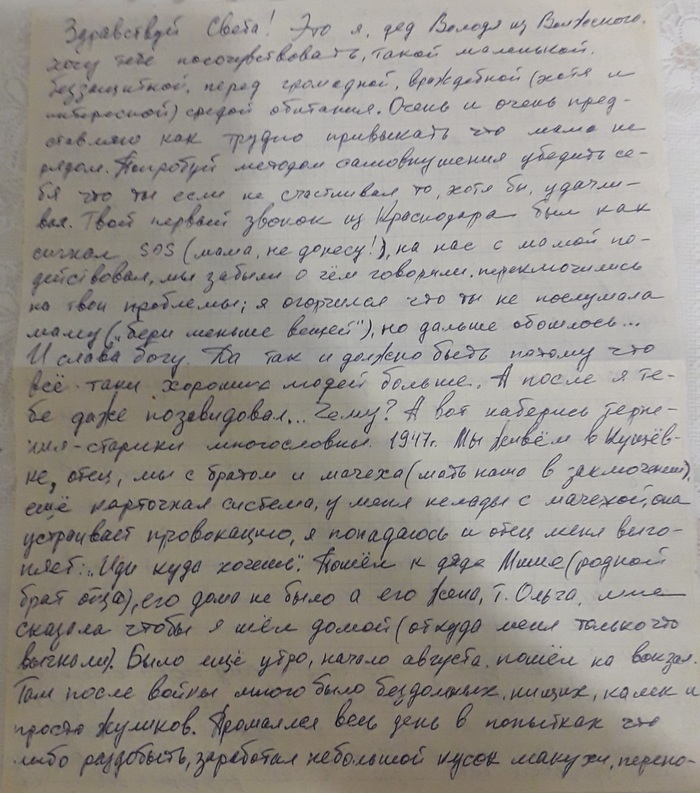 Здравствуй Света! Это я, дед Володя из Волжского.
хочу тебе посочувствовать, такой маленькой.
беззащитной. перед громадной, враждебной (хотя и
интересной) средой обитания. Очень и очень пред-
ставляю как трудно привыкать что мама не
рядом. Попробуй методом самовнушения убедить се-
бя что ты если не счастливая то, хотя бы, удачли-
вая. Твой первый звонок из Краснодара был как
сигнал SOS (мама, не донесу!), на нас с мамой по-
действовал, мы забыли о чём говорили. переключились
на твои проблемы; я огорчился что ты не послушала
маму („бери меньше вещей"), но дальше обошлось...
И слава богу. Да так и должно быть потому что
всё-таки хороших людей больше. А после я те-
бе даже позавидовал... Чему? А вот наберись терпе-
ния-старики многословны. 1947г. Мы живём в Кущёв-
ке, отец, мы с братом и мачеха (мать наша в заключении).
ещё карточная система, у меня нелады с мачехой, она
устраивает провокацию, я попадаюсь и отец меня выго-
няет: „Иди куда хочешь". Пошёл к дяде Мише (родной
брат отца), его дома не было а его жена, т. Ольга, мне
сказала чтобы я шёл домой (откуда меня только что
выгнали). Было ещё утро, начало августа. пошёл на вокзал.
Там после войны много было бездомных, нищих, калек и
просто жуликов. Промаялся весь день в попытках что
либо раздобыть, заработал небольшой кусок макухи, перено-